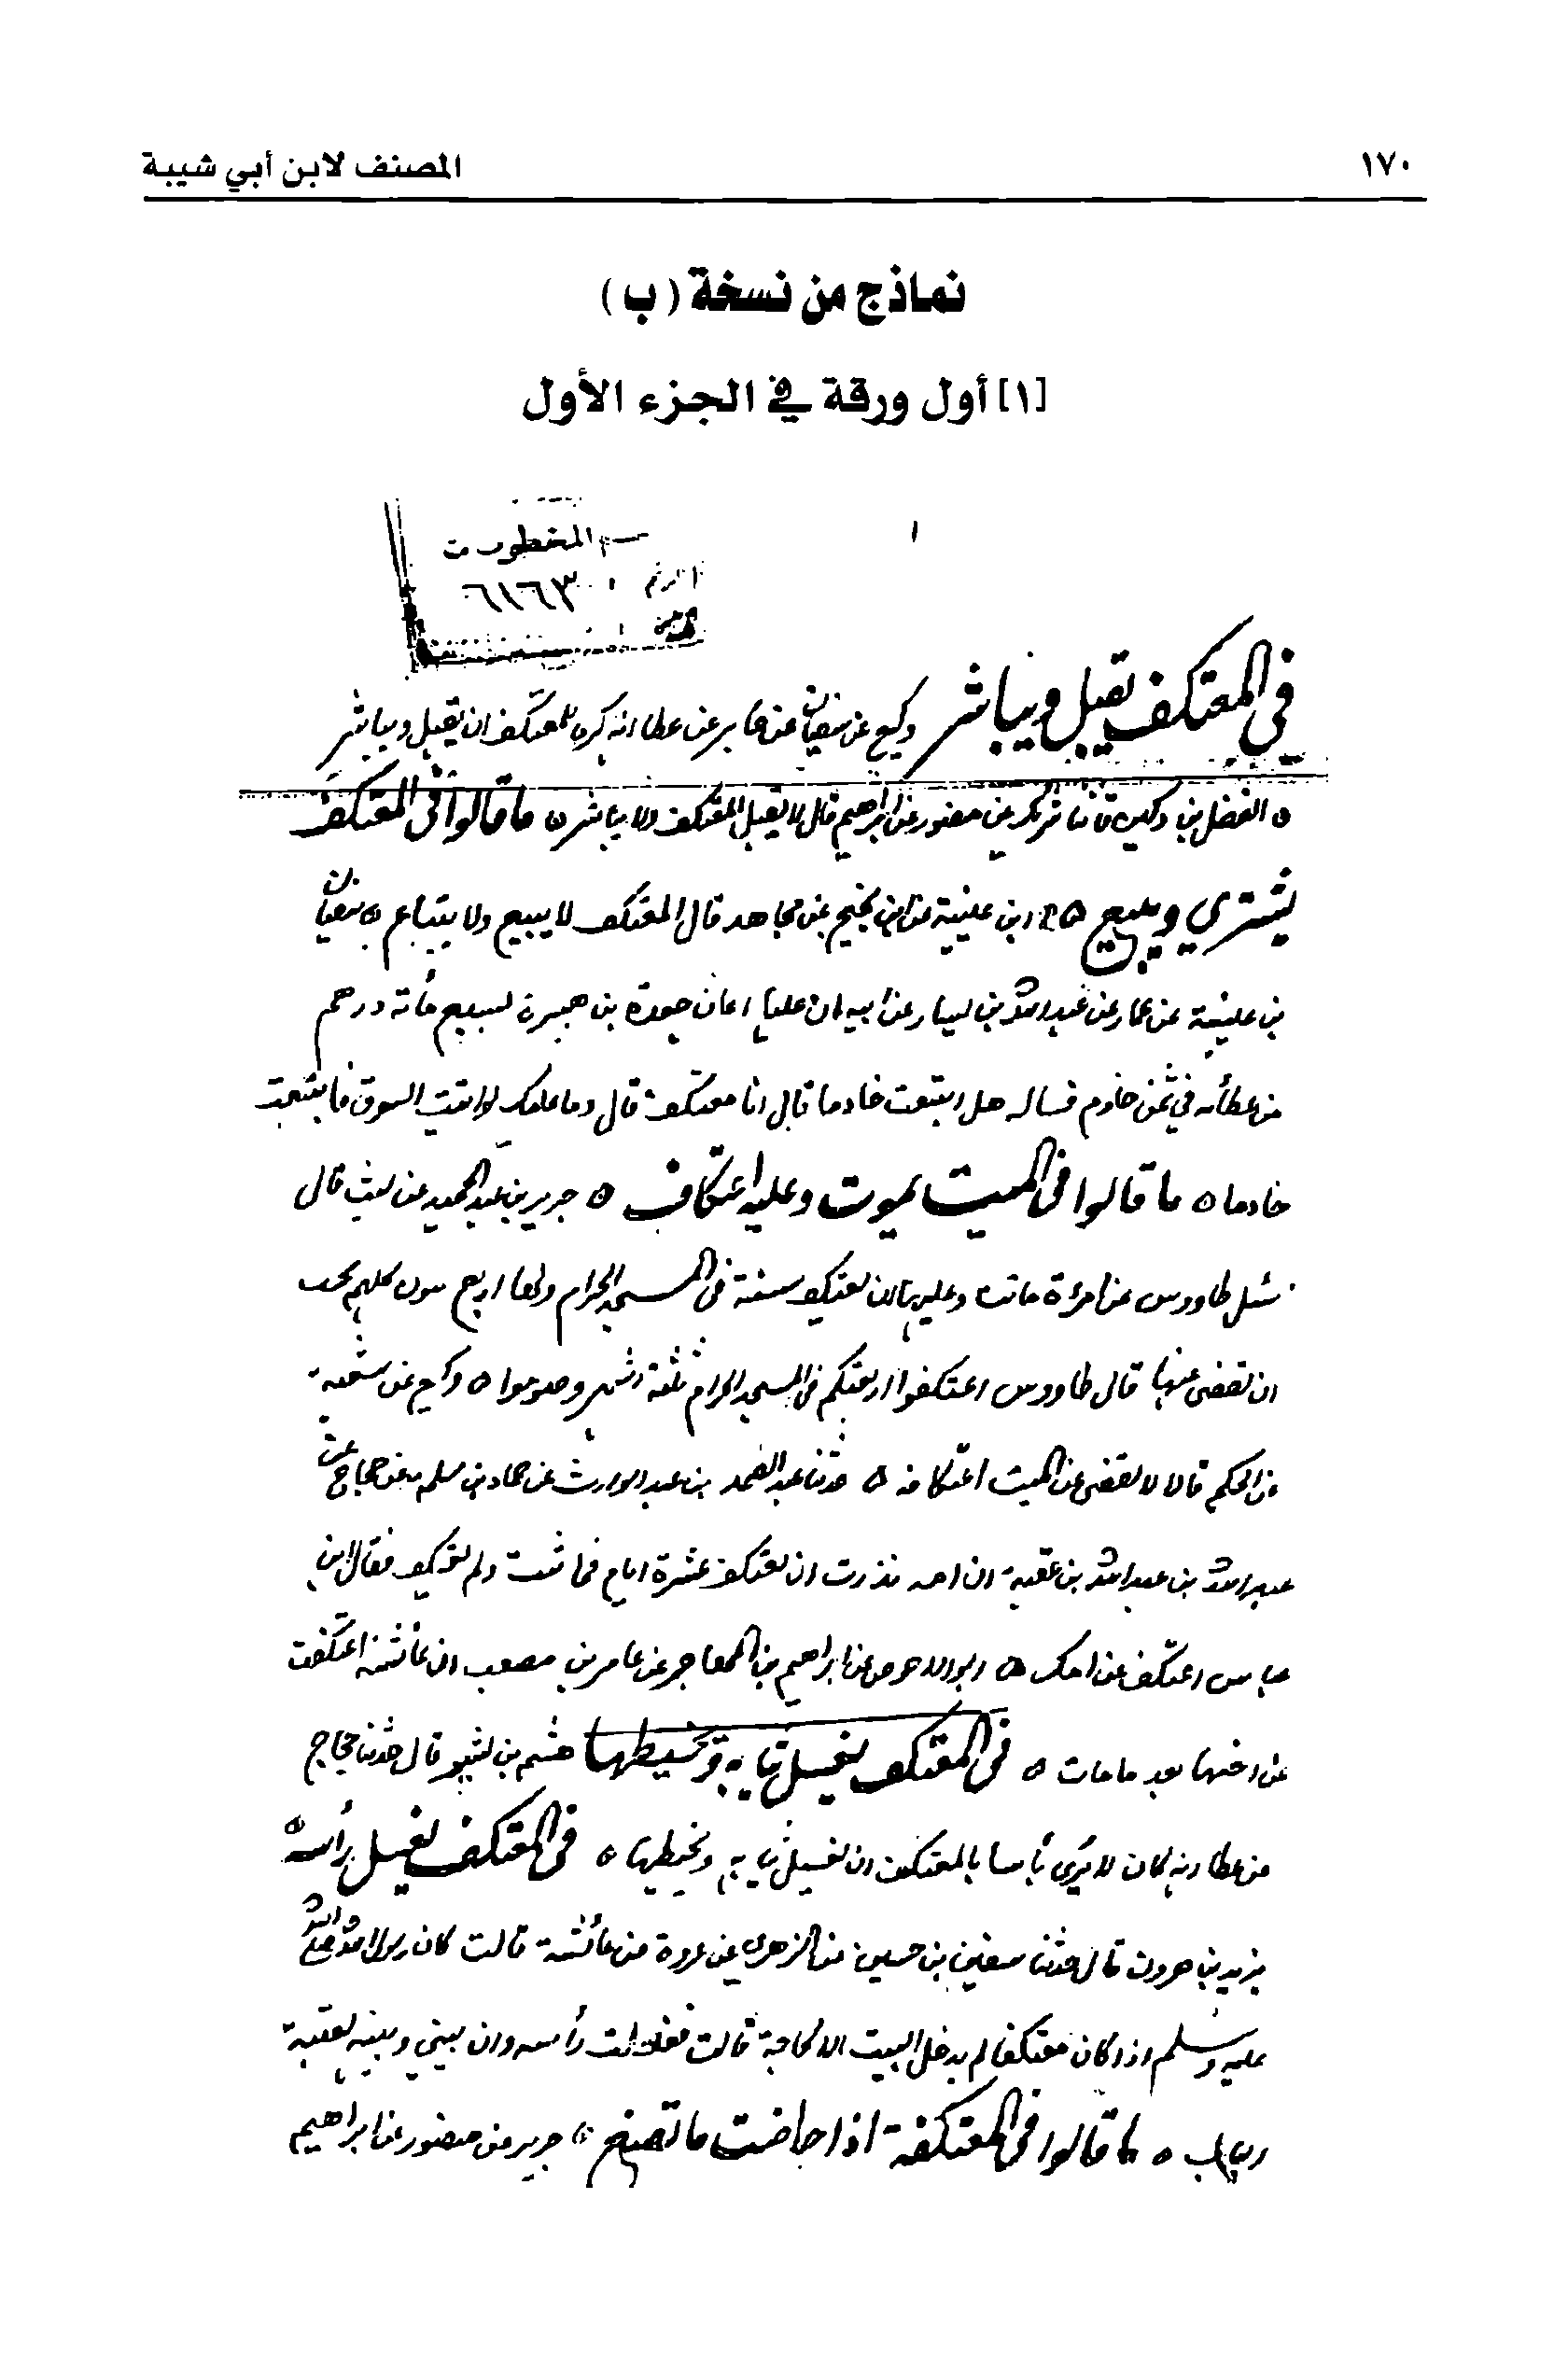 ١٧٠ المصنف لابن أبي شيبة
نماذج من نسخة (ب)
[١] أول ورقة في الجزء الأول
١
المخطوطات
الرقم ٦١٦٣
في المعتكف يقبل ويباشر وكيع عن سفيان عن جابر عن عطا انه كره للمعتكف ان يقبل ويباشر
ه الفضل بن دكين قال نا شريك عن منصور عن ابراهيم قال لا يقبل المعتكف ولا يباشر ه ما قالوا في المعتكف
يشتري ويبيع ه ابن عيينة عن ابن نجيح عن مجاهد قال المعتكف لا يبيع ولا يبتاع ه سفيان
بن عيينة عن عمار عن عبد الله بن يسار عن ابيه ان عليا اعان جعدة بن هبيرة بسبع مأتة درهم
من عطائه في ثمن خادم فساله هل ابتعت خادما قال انا معتكف قال وما عليك لو اتيت السوق فابتعت
خادما ه ما قالوا في الميت يموت وعليه اعتكاف ه جرير بن عبد الحميد عن ليث قال
سئل طاووس عن امرءة ماتت وعليها ان تعتكف سنة في المسجد الحرام ولها اربع بنون كلهم يحب
ان تقضى عنها قال طاووس اعتكفوا اربعتكم في المسجد الحرام ثلثة اشهر وصوموا ه وكيع عن شعبة
عن الحكم قال لا يقضى عن الميت اعتكافه ه حدثنا عبد الصمد بن عبد الوارث عن حماد بن سلمه عن حجاج عن
عبد الله بن عبد الله بن عقبة ان امه نذرت ان تعتكف عشرة ايام فماتت ولم تعتكف فقال ابن
عباس اعتكف عن امك ه ابو الاحوص عن ابراهيم بن المهاجر عن عامر بن مصعب ان عائشة اعتكفت
عن اخيها بعد مامات ه في المعتكف يغسل ثيابه ويخيطها هشيم بن بشير قال حدثنا حجاج
عن عطا انه كان لا يرى بأسا بالمعتكف ان يغسل ثيابه ويخيطها ه في المعتكف يغسل رأسه
يزيد بن هرون قال حدثنا سفين بن حسين عن الزهري عن عروة عن عائشة قالت كان رسول الله صلى الله
عليه وسلم اذا كان معتكفا لم يدخل البيت الا لحاجة قالت فغسلت رأسه وان بيني وبينه لعتبة
الباب ه ما قالوا في المعتكفة اذا حاضت ما تصنع ه جرير عن منصور عن ابراهيم